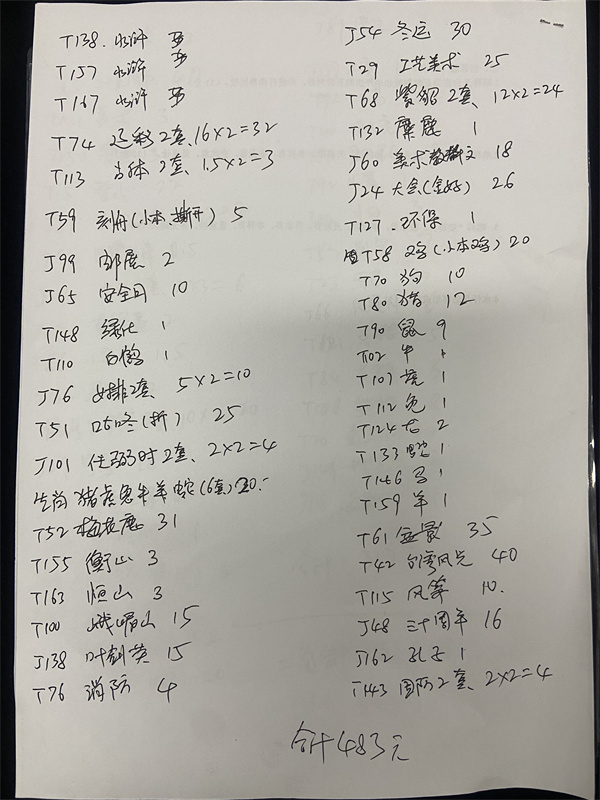 T138. 水浒
T157 水浒
T167 水浒
T74 辽彩2套、16×2=32
T113 吉体2套、1.5×2=3
T59 刻舟(小本、撕开) 5
J99 邮展 2
J65 安全月 10
T148 绿化 1
T110 白鹤 1
J76 女排2套、5×2=10
T51 咕咚(折) 25
J101 任弼时2套、2×2=4
生肖 猪虎兔牛羊蛇(6套)
T52 梅花鹿 31
T155 衡山 3
T163 恒山 3
T100 峨嵋山 15
J138 叶剑英 15
T76 消防 4
J54 冬运 30
T29 工艺美术 25
T68 紫貂2套、12×2=24
T132 麋鹿 1
J60 美术 18
J24 大会(全好) 26
T127. 环保 1
T58 鸡(小本鸡) 20
T70 狗 10
T80 猪 12
T90 鼠 9
T102 牛 1
T107 虎 1
T112 兔 1
T124 龙 2
T133 蛇 1
T146 马 1
T159 羊 1
T61 35
T42 台湾风光 40
T115 风筝 10.
J48 三十周年 16
J162 孔子 1
T143 国防2套、2×2=4
合计483元